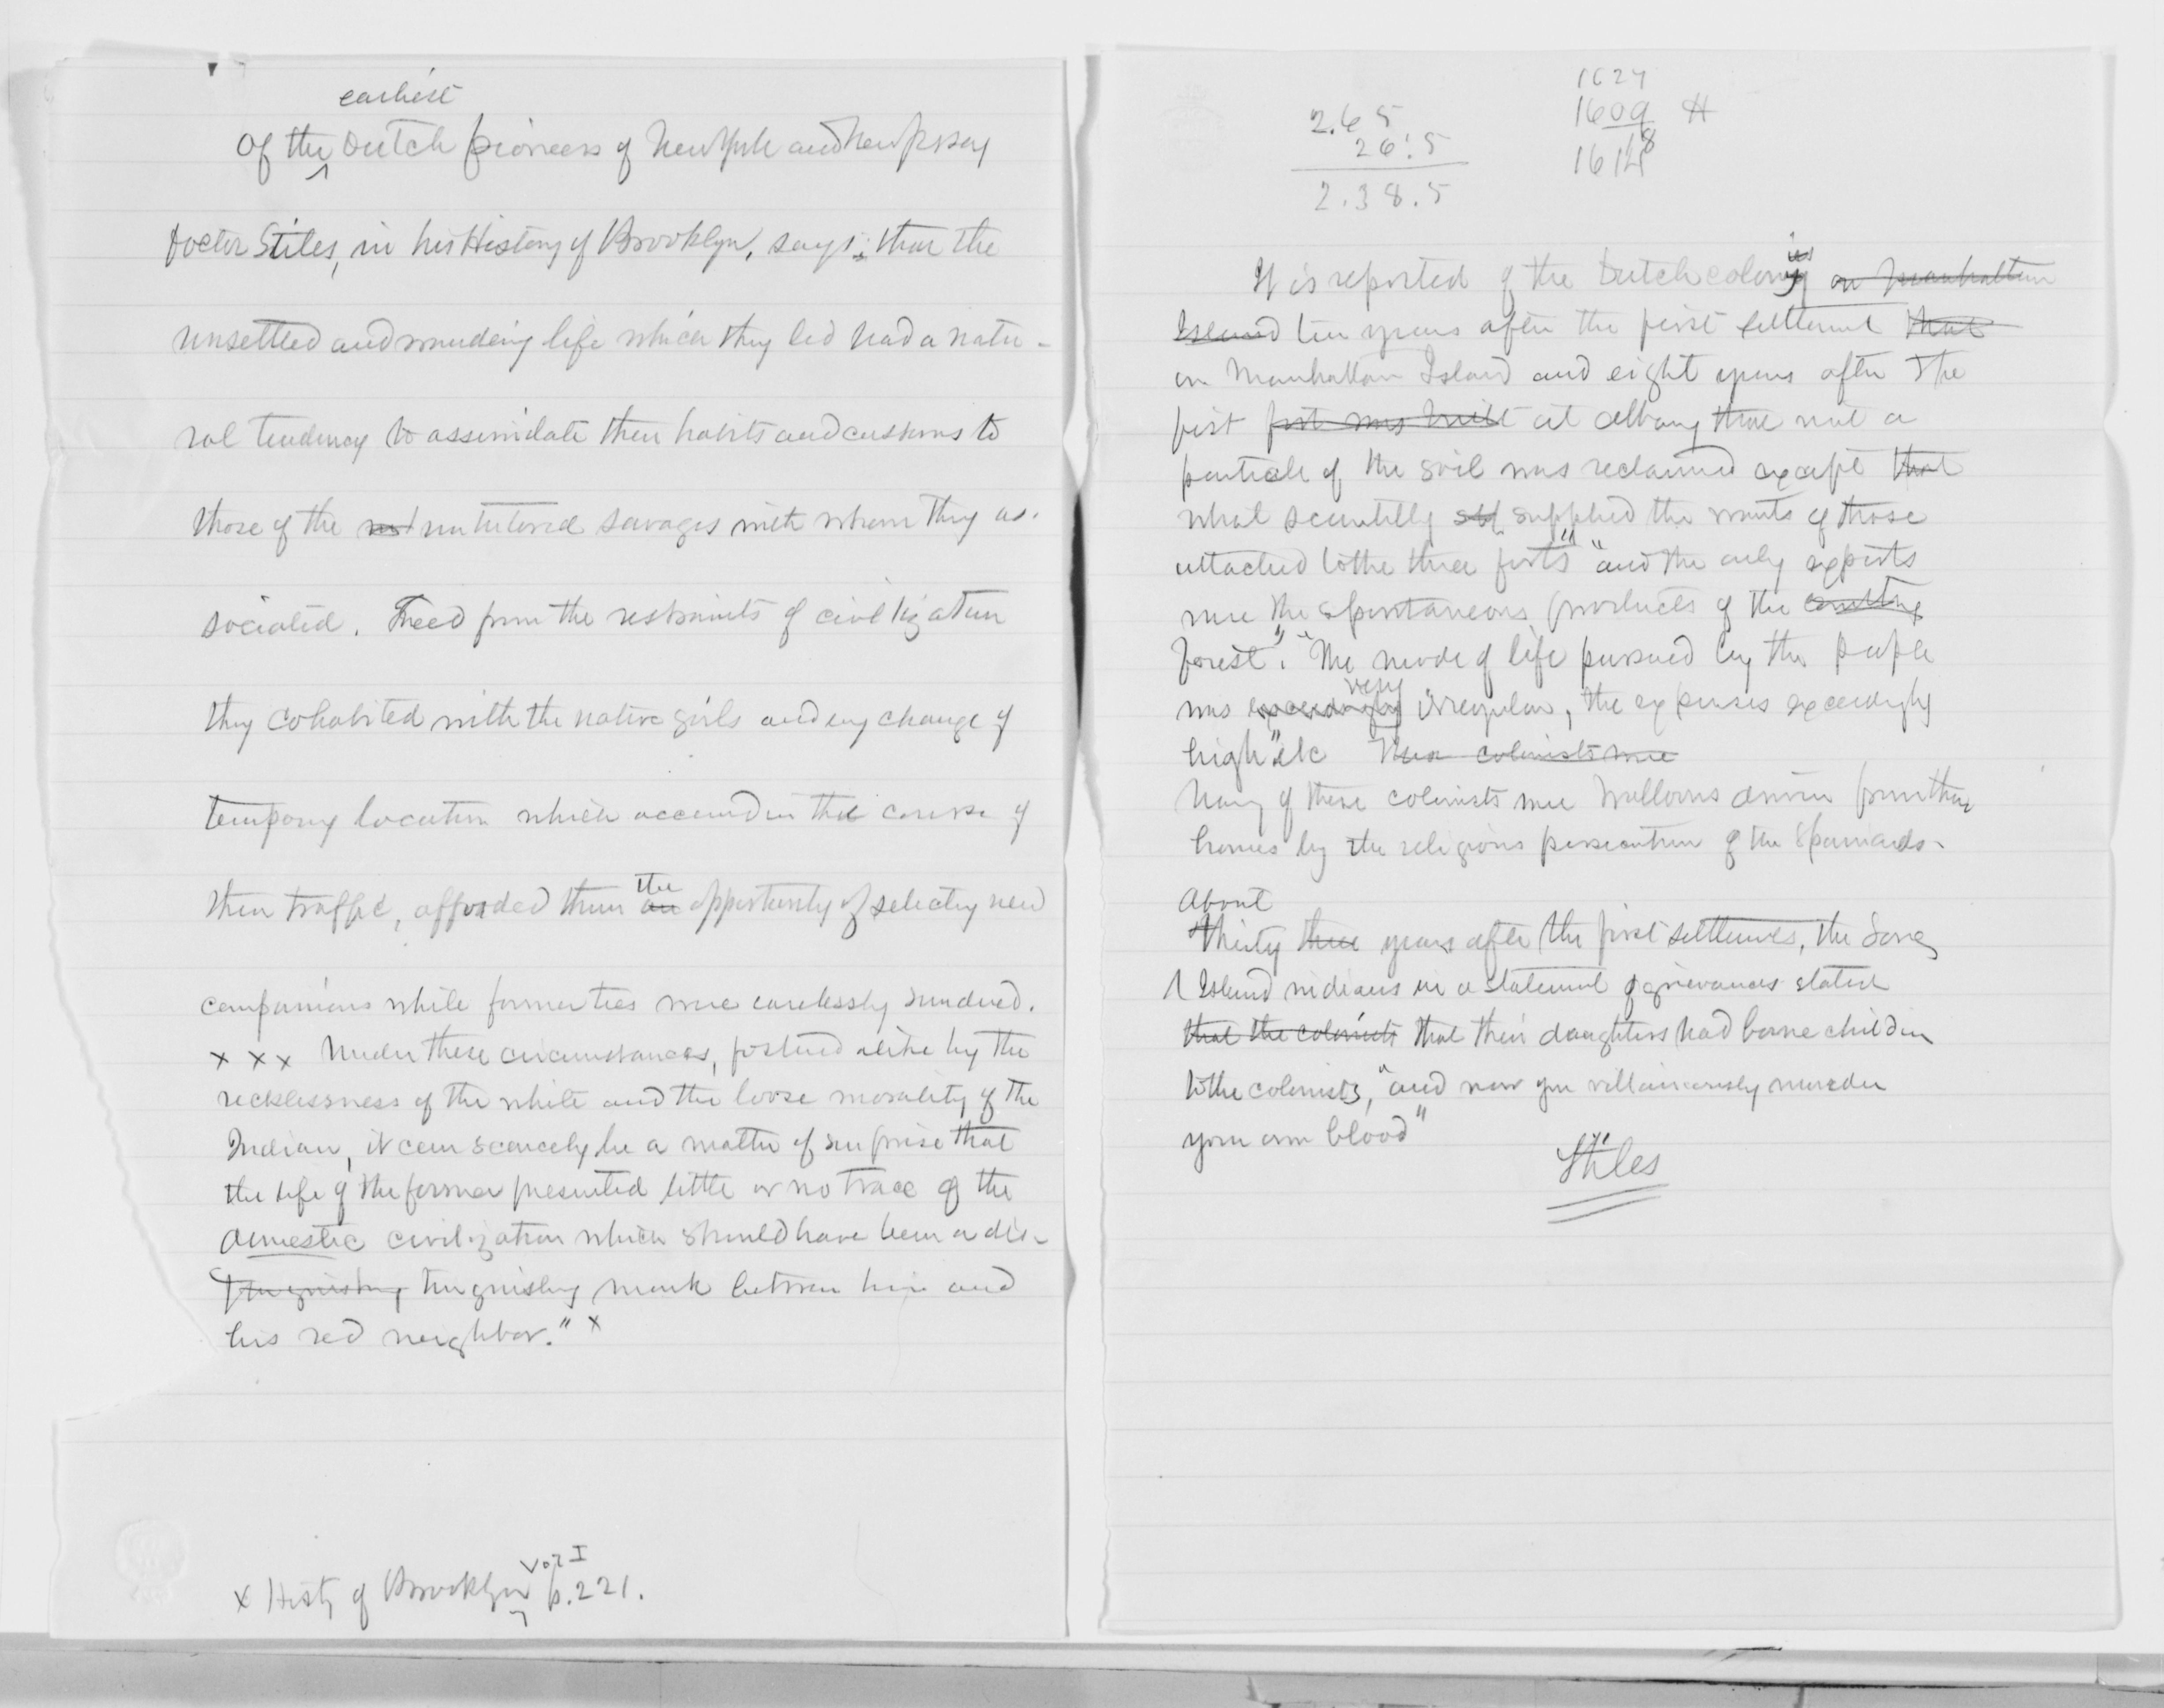 earliest
Of the Dutch pioneers of New York and New Jersey
Doctor Stiles, in his History of Brooklyn, says: that the
unsettled and wandering life which they led had a natu-
ral tendency to assimilate their habits and customs to
those of the untutored savages with whom they as-
sociated. Freed from the restraints of civilization
they cohabited with the native girls and any change of
temporary location which occurred in the course of
their traffic, afforded them an the opportunity of selecting new
companions while former ties were carelessly sundered.
x x x Under these circumstances, fostered alike by the
recklessness of the white and the loose morality of the
Indian, it can scarcely be a matter of surprise that
the life of the former presented little or no trace of the
domestic civilization which should have been a dis-
tinguishing tinguishing mark between him and
his red neighbor." x
x Histy of Brooklyn Vol I p. 221.
1624
2.65 1609 H
26.5 1618
2.38.5
It is reported of the Dutch colonies on Manhattan
Island ten years after the first settlement that
on Manhattan Island and eight years after the
first fort was built at Albany that not a
particle of the soil was reclaimed except that
what scantily supplied the wants of those
attached to the three forts" "and the only exports
were the spontaneous products of the
forest". "The mode of life pursued by the people
was exceedingly very irregular, the expenses exceedingly
high" etc These colonists were
Many of these colonists were Walloons driven from their
homes by the religious persecution of the Spaniards.
About
Thirty three years after the first settlement, the Long
Island indians in a statement of grievances stated
that the colonists that their daughters had borne children
to the colonists, "and now you villainously murder
your own blood"
Stiles